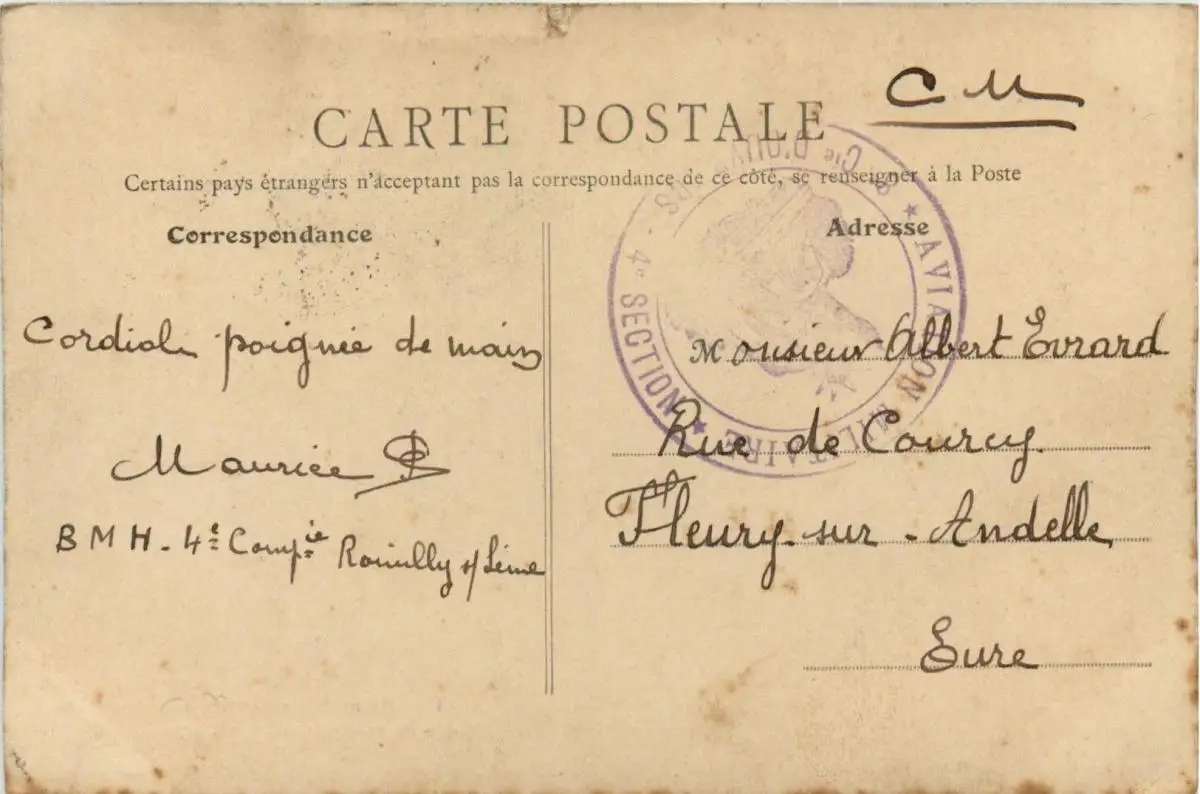 C M
CARTE POSTALE
Certains pays étrangers n'acceptant pas la correspondance de ce côté, se renseigner à la Poste
Correspondance
Cordiale poignée de main
Maurice
B M H - 4e Compie Romilly s/ Seine
Adresse
Monsieur Albert Evrard
Rue de Courcy
Fleury-sur-Andelle
Eure
★ AVIATION MILITAIRE ★
4e SECTION
Cie D'OUV